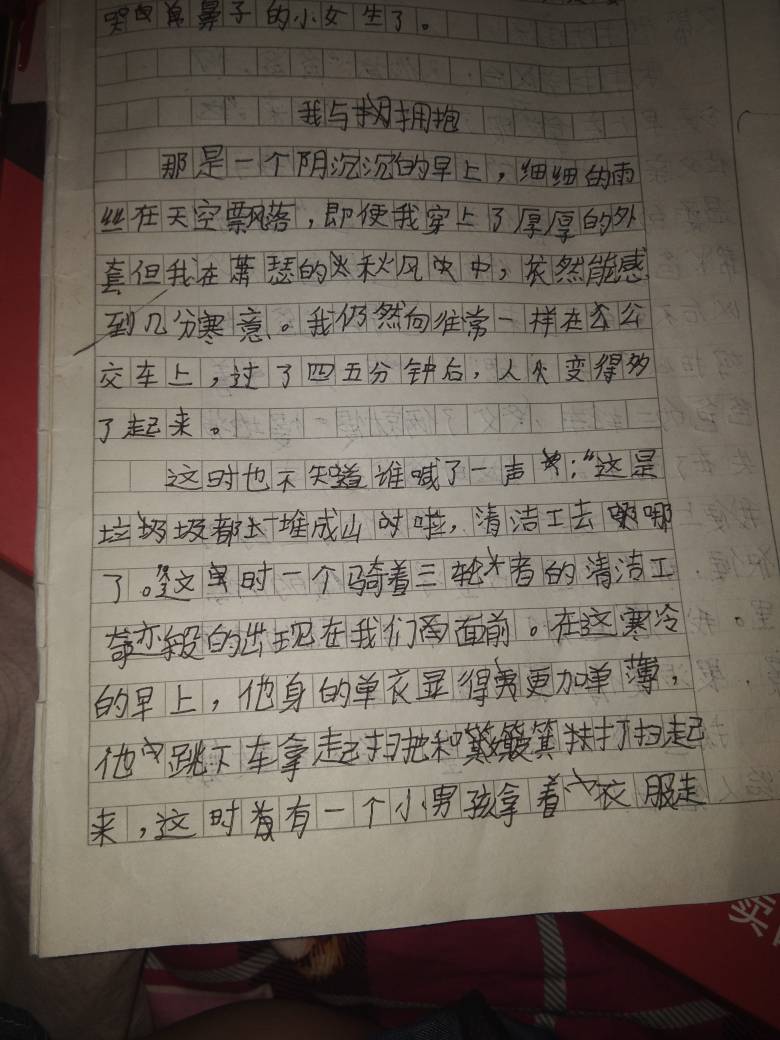 哭鼻子的小女生了。
我与拥抱
那是一个阴沉沉的早上，细细的雨
丝在天空飘落，即使我穿上了厚厚的外
套但我在萧瑟的秋风中，依然能感
到几分寒意。我仍然向往常一样在公
交车上，过了四五分钟后，人变得多
了起来。
这时也不知道谁喊了一声："这是
垃圾都堆成山时啦，清洁工去哪
了。"这时一个骑着三轮者的清洁工
奇迹段的出现在我们面前。在这寒冷
的早上，他身的单衣显得更加单薄，
他跳下车拿起扫把和簸箕打扫起
来，这时有一个小男孩拿着衣服走